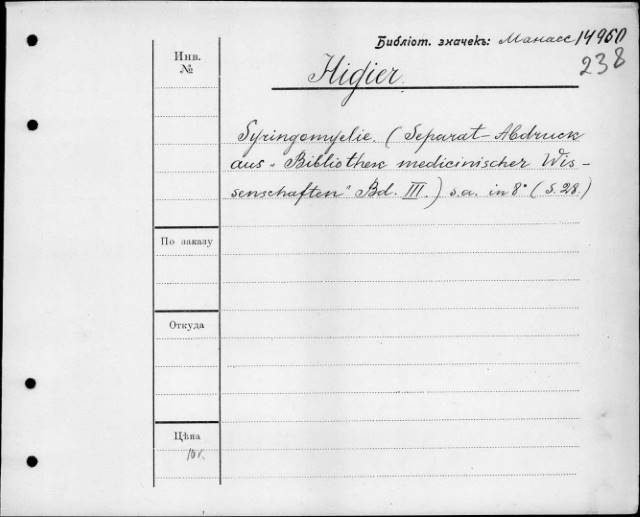 Библіот. значекъ: Манасс 14960
238
Инв.
№
Higier.
Syringomyelie. (Separat-Abdruck
aus „Bibliothek medicinischer Wis-
senschaften" Bd. III.) s.a. in 8° (S. 28.)
По заказу
Откуда
Цѣна
10к.